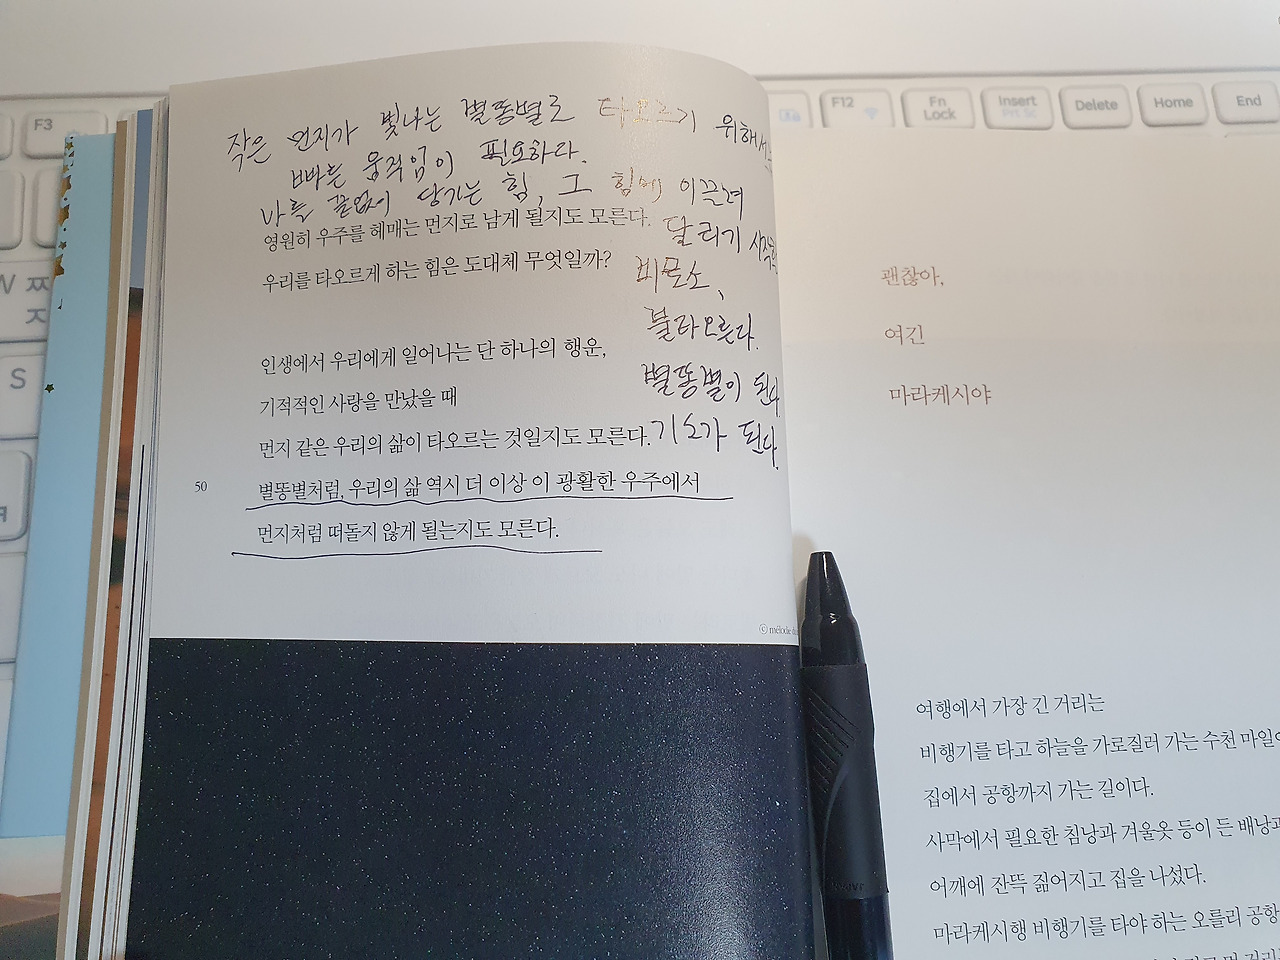 F3
F12
Fn
Lock
Insert
Prt Sc
Delete
Home
End
W ㅉ
ㅈ
S
작은 먼지가 빛나는 별똥별로 타오르기 위해서는
빠른 움직임이 필요하다.
나를 끝없이 당기는 힘, 그 힘에 이끌려
달리기 시작
비로소,
불타오른다.
별똥별이 된다
기소가 된다.
영원히 우주를 헤매는 먼지로 남게 될지도 모른다.
우리를 타오르게 하는 힘은 도대체 무엇일까?
인생에서 우리에게 일어나는 단 하나의 행운,
기적적인 사랑을 만났을 때
먼지 같은 우리의 삶이 타오르는 것일지도 모른다.
50
별똥별처럼, 우리의 삶 역시 더 이상 이 광활한 우주에서
먼지처럼 떠돌지 않게 될는지도 모른다.
ⓒ mélodie
괜찮아,
여긴
마라케시야
여행에서 가장 긴 거리는
비행기를 타고 하늘을 가로질러 가는 수천 마일이
집에서 공항까지 가는 길이다.
사막에서 필요한 침낭과 겨울옷 등이 든 배낭과
어깨에 잔뜩 짊어지고 집을 나섰다.
마라케시행 비행기를 타야 하는 오를리 공항